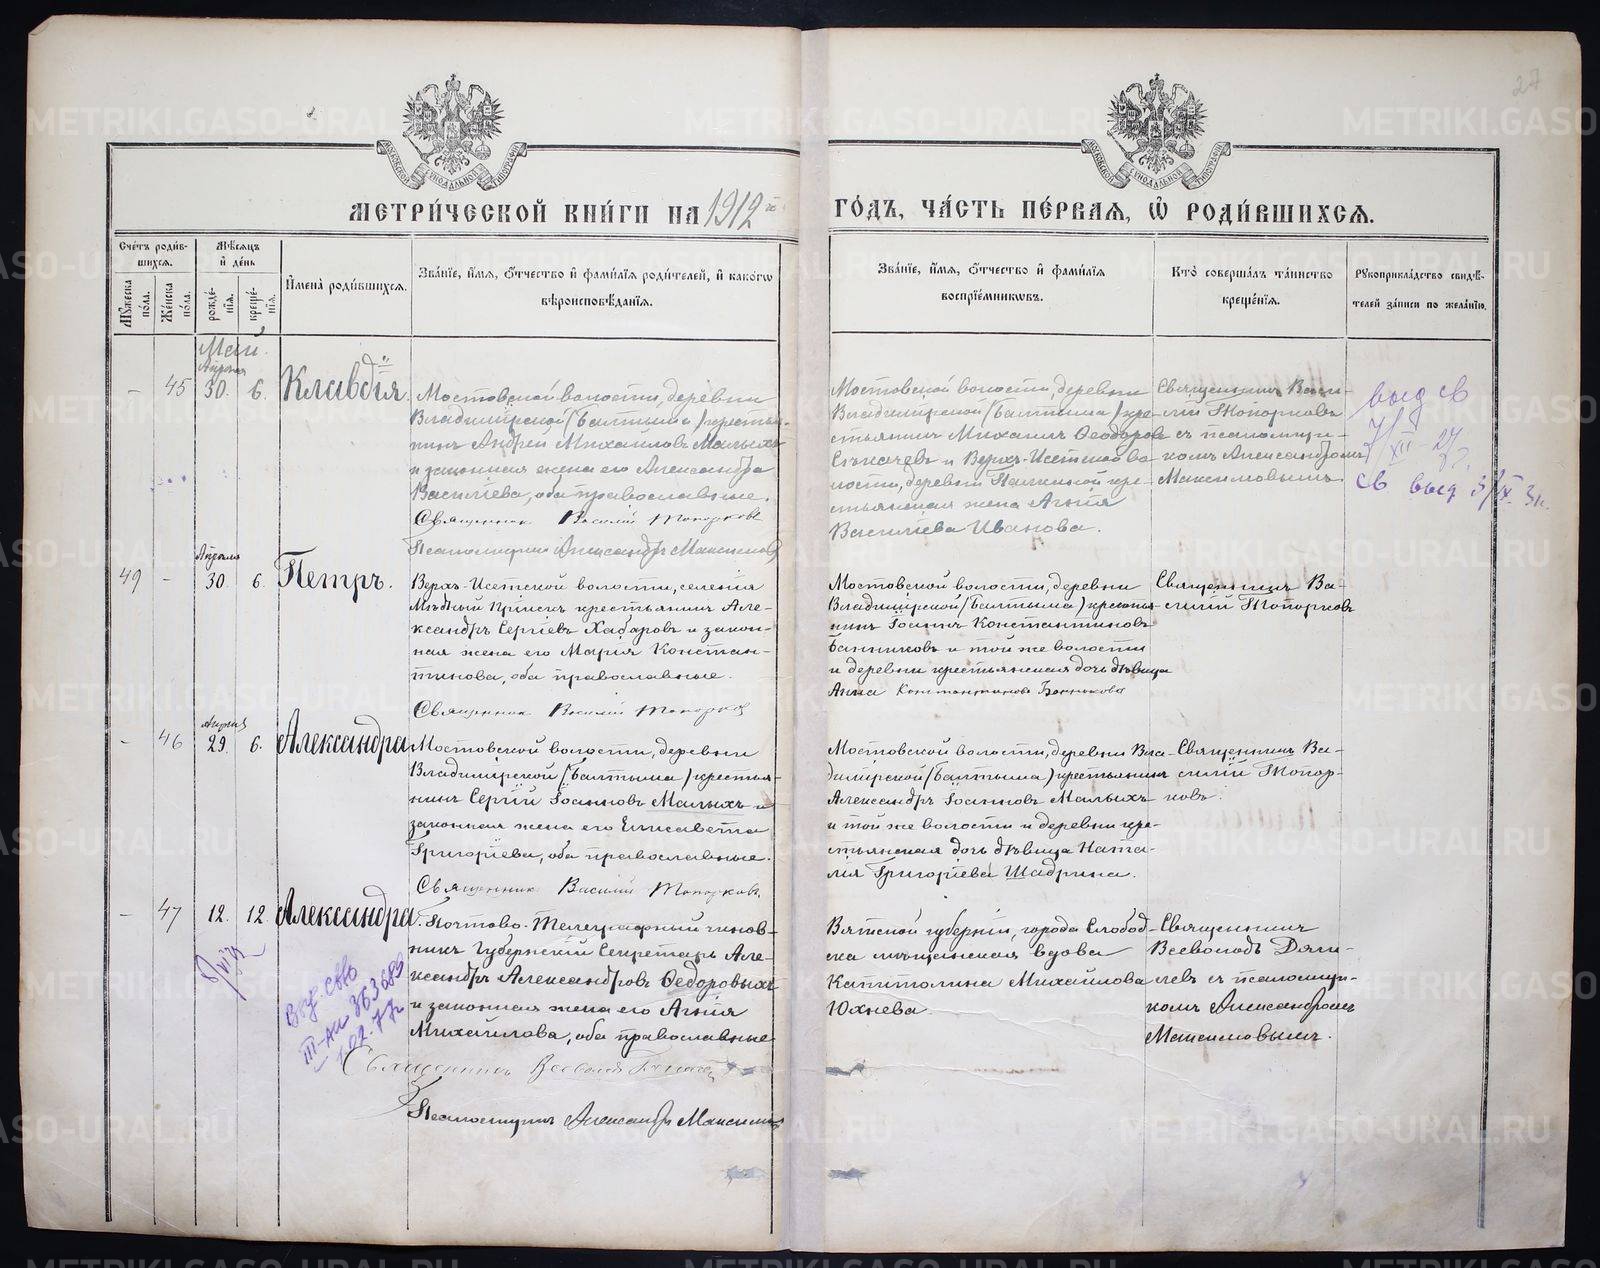 27
МЕТРИ́ЧЕСКОЙ КНИ́ГИ НА 1912й
ГО́ДЪ, ЧА́СТЬ ПЕ́РВАѦ, Ѡ҆ РОДИ́ВШИХСѦ.
Счётъ роди́вшихсѧ.
Мꙋ́жеска по́ла.
Же́нска по́ла.
Мѣ́сѧцъ и҆ де́нь
рожде́нїѧ.
креще́нїѧ.
И҆мена̀ роди́вшихсѧ.
Зва́нїе, и҆́мѧ, ѻ҆́тчество и҆ фами́лїѧ роди́телей, и҆ како́гѡ
вѣроисповѣ́данїѧ.
Зва́нїе, и҆́мѧ, ѻ҆́тчество и҆ фами́лїѧ
воспрїе́мникѡвъ.
Кто̀ соверша́лъ та́инство
креще́нїѧ.
Рꙋкоприкла́дство свидѣ́-
телей за́писи по жела́нїю.
Май.
Апрѣля
- 45 30. 6. Клавдія.
Мостовской волости, деревни
Владимірской (Балтыма) крестья-
нинъ Андрей Михайловъ Малыхъ
и законная жена его Александра
Васильева, оба православные.
Священник Василий Топорков
Псаломщик Александръ Максимов
Мостовской волости, деревни
Владимірской (Балтыма) кре-
стьянинъ Михаилъ Ѳеодоров
и Верхъ-Исетской во-
лости, деревни Палкиной кре-
стьянская жена Агнія
Васильева Иванова.
Священникъ Васи-
лій Топорковъ
съ псаломщи-
комъ Александромъ
Максимовымъ
выд св
7/XII 27 г.
св выд 3/IX
Апрѣля
49 - 30 6. Петръ.
Верхъ-Исетской волости, селенія
Мѣдный Пріискъ крестьянинъ Але-
ксандръ Сергіевъ Хабаровъ и закон-
ная жена его Марія Констан-
тинова, оба православные.
Священник Василий Топорков
Мостовской волости, деревни
Владимірской (Балтыма) крестья-
нинъ Іоаннъ Константиновъ
Банниковъ и той же волости
и деревни крестьянская дочь дѣвица
Анна Константинова Банникова
Священникъ Ва-
силій Топорковъ
Апрѣля
- 46 29. 6. Александра
Мостовской волости, деревни
Владимірской (Балтыма) крестья-
нинъ Сергій Іоанновъ Малыхъ и
законная жена его Елисавета
Григоріева, оба православные.
Священник Василий Топорковъ.
Мостовской волости, деревни Вла-
димірской (Балтыма) крестьянинъ
Александръ Іоанновъ Малыхъ
и той же волости и деревни кре-
стьянская дочь дѣвица Ната-
лія Григоріева Шадрина.
Священникъ Ва-
силій Топор-
ковъ.
- 47 12. 12 Александра.
Почтово-Телеграфный чинов-
никъ Губернскій Секретарь Але-
ксандръ Александровъ Ѳедоровыхъ
и законная жена его Агнія
Михайлова, оба православные
Священникъ Всеволодъ
Псаломщикъ Александръ Максимов
Вятской губерніи, города Слобод-
ска мѣщанская вдова
Капитолина Михайлова
Юхнева.
Священникъ
Всеволодъ
съ псаломщи-
комъ Александромъ
Максимовымъ.
III-АИ 363689